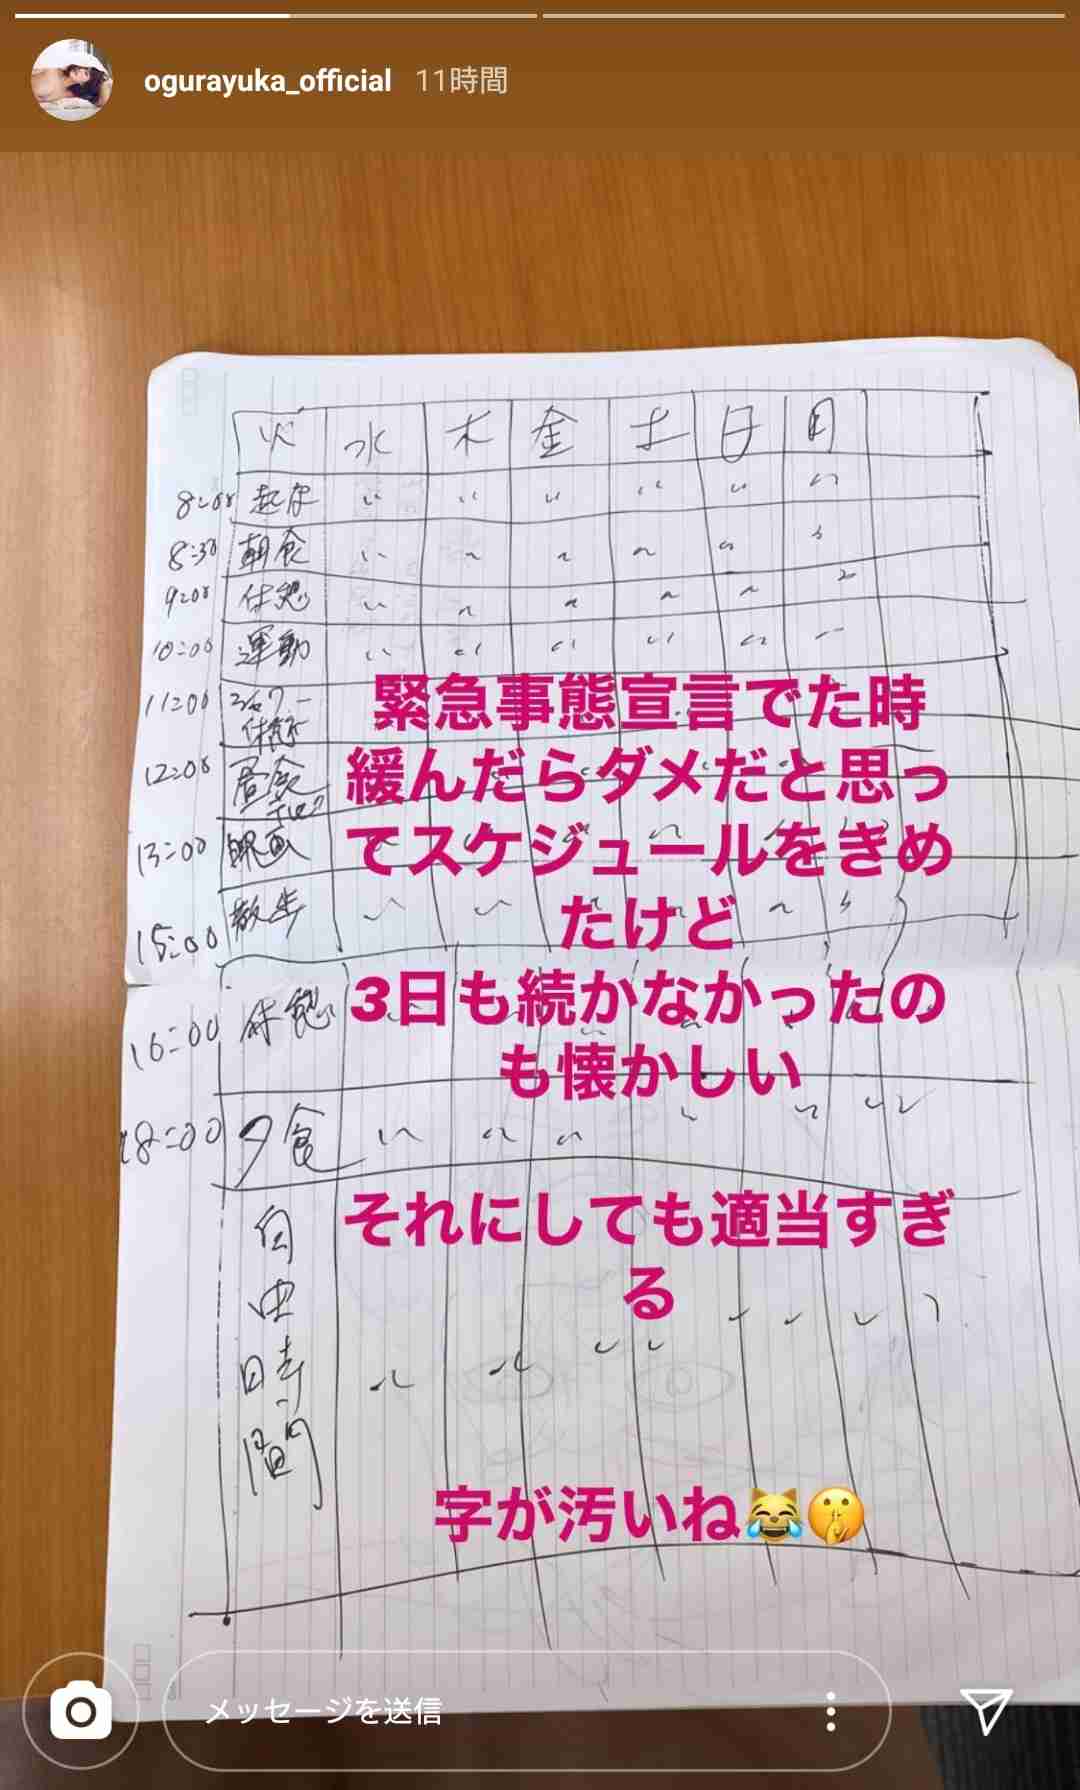 ogurayuka_official 11時間
火 水 木 金 土 日 月
8:00 起床
8:30 朝食
9:00 休憩
10:00 運動
11:00 シャワー
休憩
12:00 昼食
13:00 映画
15:00 散歩
緊急事態宣言でた時
緩んだらダメだと思っ
てスケジュールをきめ
たけど
3日も続かなかったの
も懐かしい
16:00 休憩
18:00 夕食
それにしても適当すぎ
る
自由時間
字が汚いね😹🤫
メッセージを送信